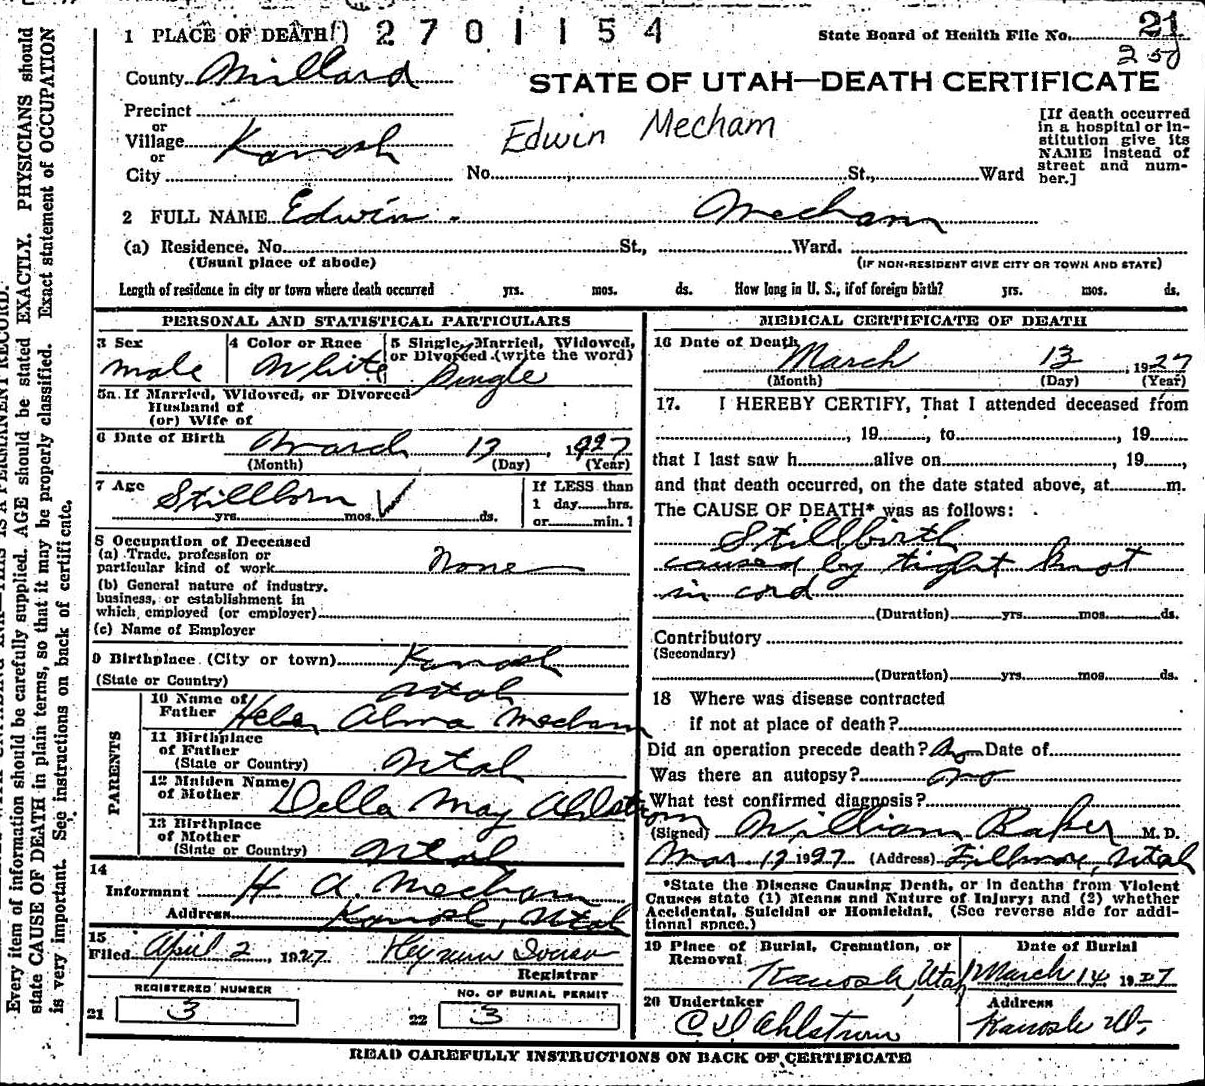 1 PLACE OF DEATH 2 7 0 1 1 5 4
State Board of Health File No. 21
250
County Millard
STATE OF UTAH—DEATH CERTIFICATE
Precinct
or
Village Kanosh
or
City No. St., Ward
Edwin Mecham
[If death occurred
in a hospital or in-
stitution give its
NAME instead of
street and num-
ber.]
2 FULL NAME Edwin Mecham
(a) Residence. No. St., Ward.
(Usual place of abode)
(IF NON-RESIDENT GIVE CITY OR TOWN AND STATE)
Length of residence in city or town where death occurred yrs. mos. ds. How long in U. S., if of foreign birth? yrs. mos. ds.
PERSONAL AND STATISTICAL PARTICULARS
3 Sex
male
4 Color or Race
White
5 Single, Married, Widowed,
or Divorced (write the word)
Single
5a If Married, Widowed, or Divorced
Husband of
(or) Wife of
6 Date of Birth March 13, 1927
(Month) (Day) (Year)
7 Age Stillborn
yrs. mos. ds.
If LESS than
1 day hrs.
or min.?
8 Occupation of Deceased
(a) Trade, profession or
particular kind of work None
(b) General nature of industry,
business, or establishment in
which employed (or employer)
(c) Name of Employer
9 Birthplace (City or town) Kanosh
(State or Country) Utah
PARENTS
10 Name of
Father Alma Mecham
11 Birthplace
of Father
(State or Country) Utah
12 Maiden Name
of Mother Della May Ahlstrom
13 Birthplace
of Mother
(State or Country) Utah
14
Informant H A. Mecham
Address Kanosh, Utah
15
Filed April 2, 1927
Registrar
REGISTERED NUMBER
21 3
NO. OF BURIAL PERMIT
22 3
MEDICAL CERTIFICATE OF DEATH
16 Date of Death
March 13, 1927
(Month) (Day) (Year)
17. I HEREBY CERTIFY, That I attended deceased from
, 19 , to , 19
that I last saw h alive on , 19 ,
and that death occurred, on the date stated above, at m.
The CAUSE OF DEATH* was as follows:
Stillbirth
caused by tight knot
in cord
(Duration) yrs. mos. ds.
Contributory
(Secondary)
(Duration) yrs. mos. ds.
18 Where was disease contracted
if not at place of death?
Did an operation precede death? No Date of
Was there an autopsy? no
What test confirmed diagnosis?
(Signed) William Baker M. D.
Mar 1927 (Address) Fillmore, Utah
*State the Disease Causing Death, or in deaths from Violent
Causes state (1) Means and Nature of Injury; and (2) whether
Accidental, Suicidal or Homicidal. (See reverse side for addi-
tional space.)
19 Place of Burial, Cremation, or
Removal
Kanosh, Utah
Date of Burial
March 14 1927
20 Undertaker
C D Ahlstrom
Address
Kanosh Ut.
READ CAREFULLY INSTRUCTIONS ON BACK OF CERTIFICATE
Every item of information should be carefully supplied. AGE should be stated EXACTLY. PHYSICIANS should
state CAUSE OF DEATH in plain terms, so that it may be properly classified. Exact statement of OCCUPATION
is very important. See instructions on back of certificate.